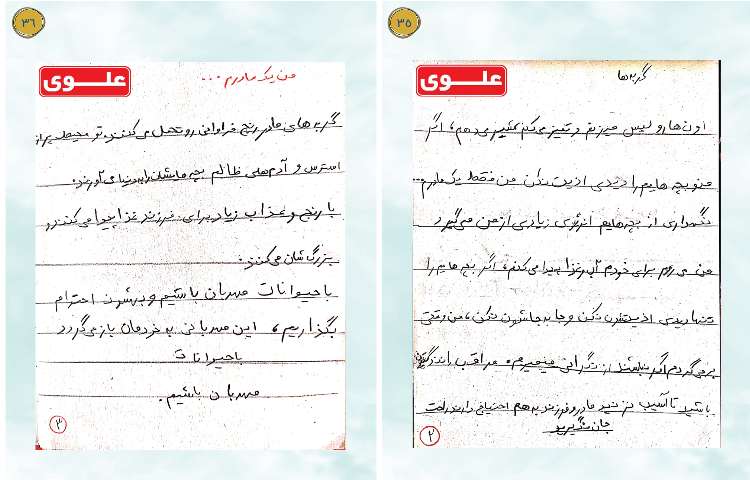 ۳۵
گربه‌ها
علوی
اون‌ها رو لیس میزنم و تمیز می‌کنم شیر می‌دهم، اگر
من و بچه‌هایم را دیدی اذیت نکن من فقط یک مادرم...
نگهداری از بچه‌هایم انرژی زیادی از من می‌گیرد
من می‌روم برای خودم آب و غذا پیدا می‌کنم، اگر بچه‌هایم را
تنها دیدی اذیتشون نکن و جا به جاشون نکن، من وقتی
برمی‌گردم اگر نباشند از نگرانی میمیرم. مراقب رانندگیتون
باشید تا آسیب نزنید مادر و فرزند به هم احتیاج دارند راحت
جان نگیرید
۲
۳۶
من یک مادرم ...
علوی
گربه‌های مادر رنج فراوانی رو تحمل می‌کنند، تو محیط پر از
استرس و آدم‌های ظالم بچه‌هایشان را به دنیا می‌آورند.
با رنج و عذاب زیاد برای فرزند غذا پیدا می‌کنند و
بزرگ‌شان می‌کنند.
با حیوانات مهربان باشیم و بهشون احترام
بگذاریم، این مهربانی به خودمان باز می‌گردد
با حیوانات
مهربان باشیم.
۳